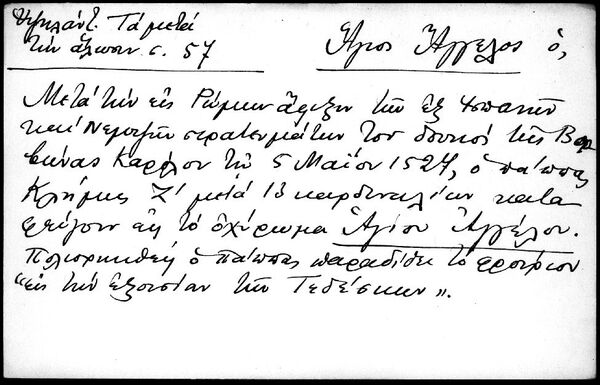 Ὑψηλάντ. Τὰ μετὰ
τὴν ἅλωσιν σ. 57
Ἅγιος Ἄγγελος ὁ,
Μετὰ τὴν εἰς Ρώμην ἄφιξιν τῶν ἐξ Ἱσπανῶν
καὶ Νεμτζῶν στρατευμάτων τοῦ δουκὸς τῆς Βορ
βώνας Καρόλου τῇ 5 Μαΐου 1527, ὁ πάπας
Κλήμης Ζ' μετὰ 13 καρδιναλίων κατα
φεύγουν εἰς τὸ ὀχύρωμα Ἁγίου Ἀγγέλου.
Πολιορκηθεὶς ὁ πάπας παραδίδει τὸ φρούριον
“εἰς τὴν ἐξουσίαν τῶν Τεδέσκων”.